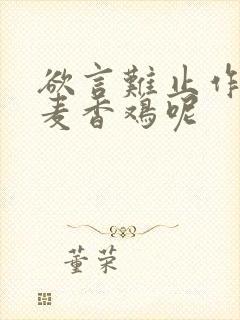 欲言難止作
麦香鸡呢
董荣